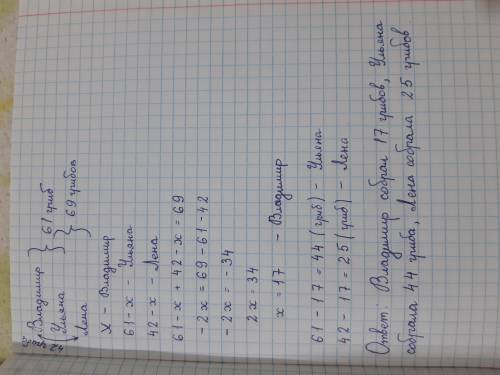 Владимир } 61 гриб
Ульяна } } 69 грибов
Лена
X - Владимир
61 - x - Ульяна
42 - x - Лена
61 - x + 42 - x = 69
- 2x = 69 - 61 - 42
- 2x = - 34
2x = 34
x = 17 - Владимир
61 - 17 = 44 (гриб) - Ульяна
42 - 17 = 25 (гриб) - Лена
Ответ: Владимир собрал 17 грибов, Ульяна
собрала 44 гриба, Лена собрала 25 грибов